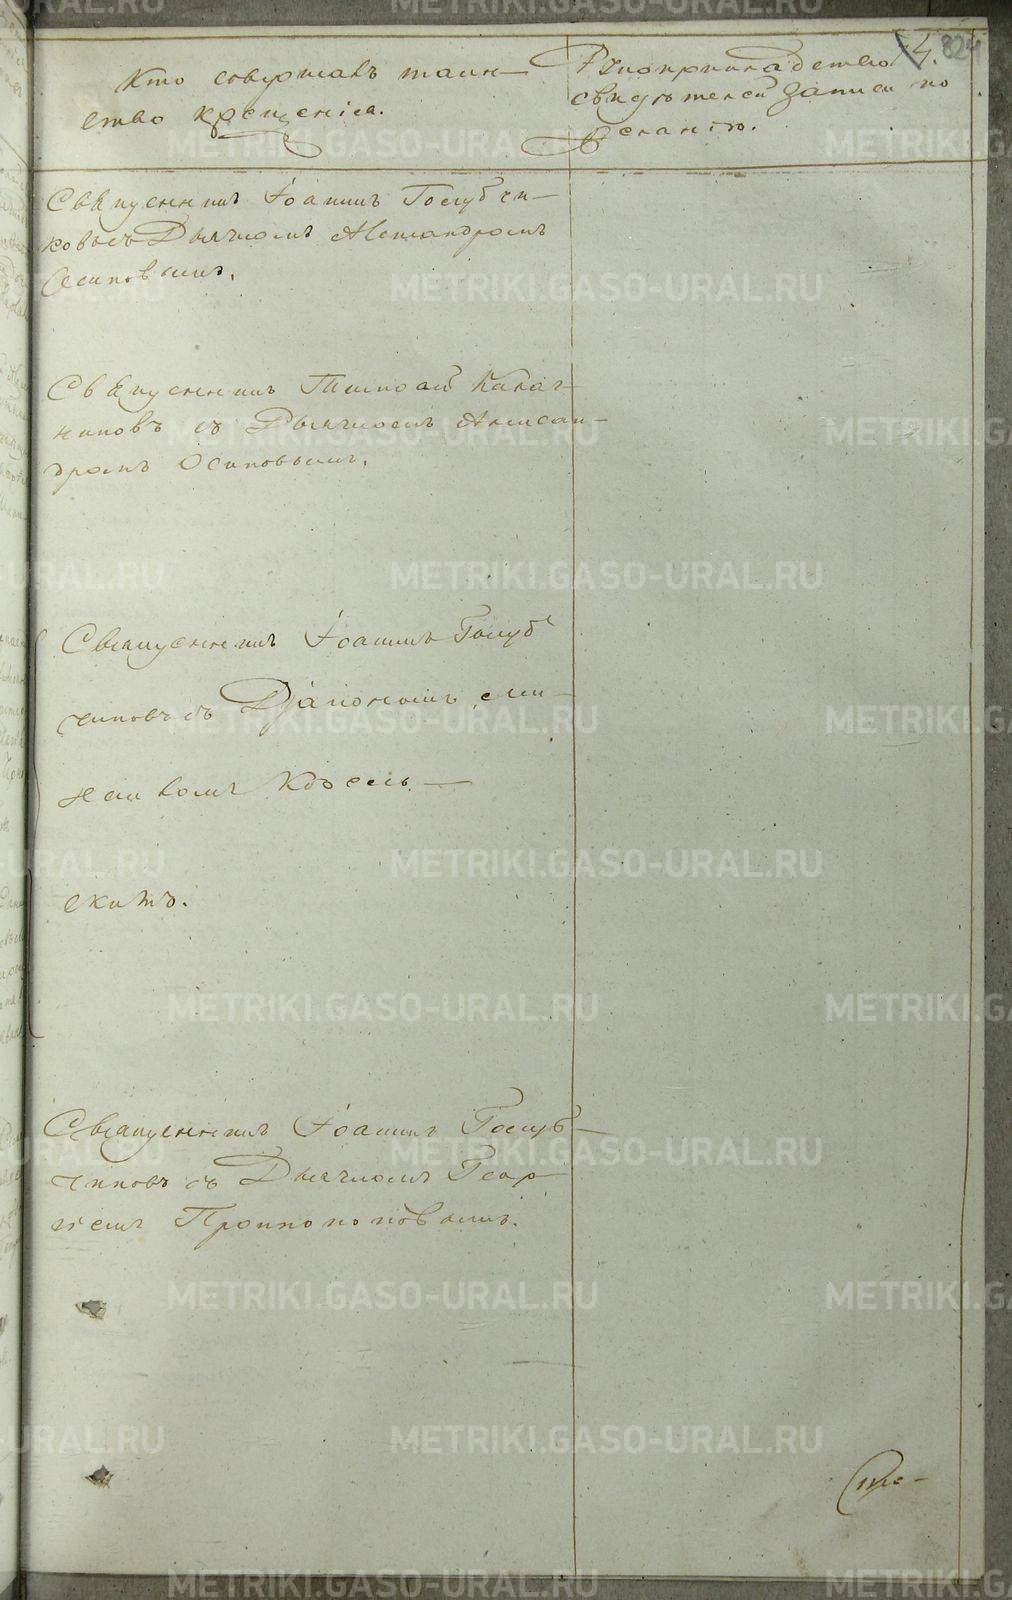 4. 824
Кто совершалъ таин-
ство крещенія.
Рукоприкладство
свидѣтелей записи по
желанію.
Священникъ Іоаннъ Голубчи-
ковъ съ Дьячкомъ Александромъ
Осиповымъ.
Священникъ Николай
съ Дьячкомъ Алексан-
дромъ Осиповымъ.
Священникъ Іоаннъ Голуб-
чиковъ съ Діакономъ
скимъ.
Священникъ Іоаннъ Голуб-
чиковъ съ Дьячкомъ Геор-
гіемъ Протопоповымъ.
METRIKI.GASO-URAL.RU